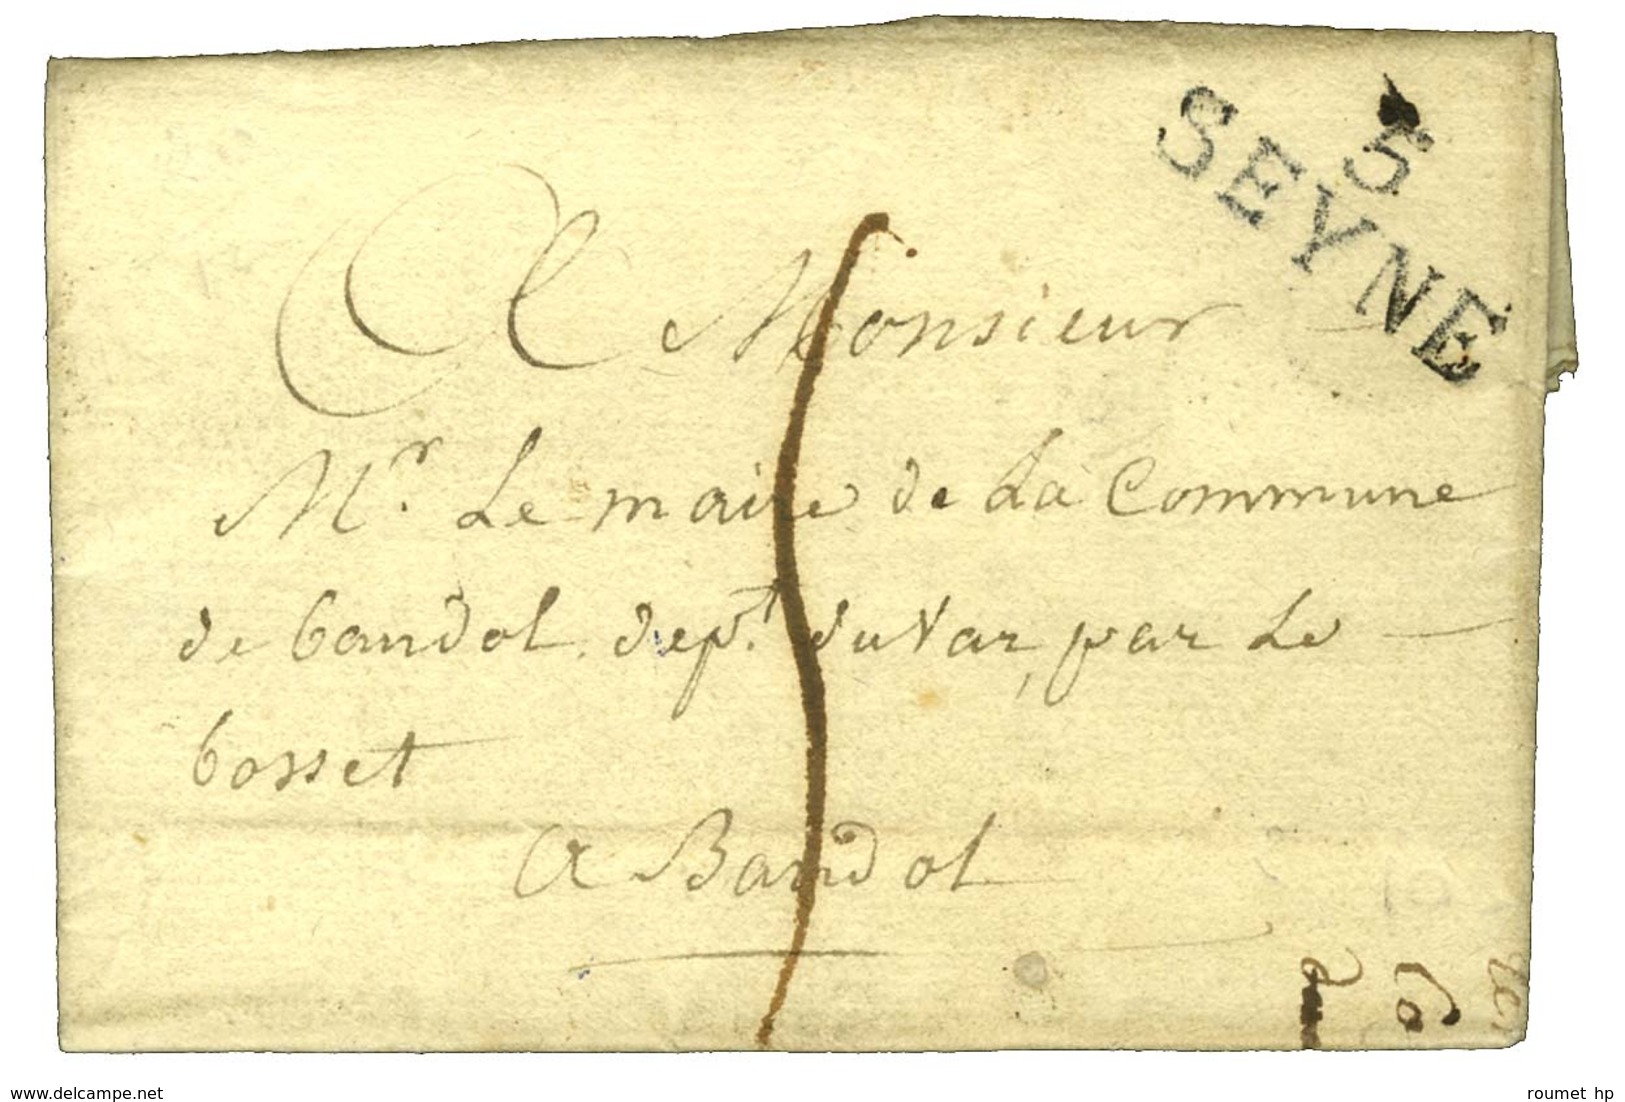 5
SEYNE
A Monsieur
Mr. Le maire de La Commune
de bandol. dept. du Var, par Le
bosset
A Bandol
www.delcampe.net
roumet hp